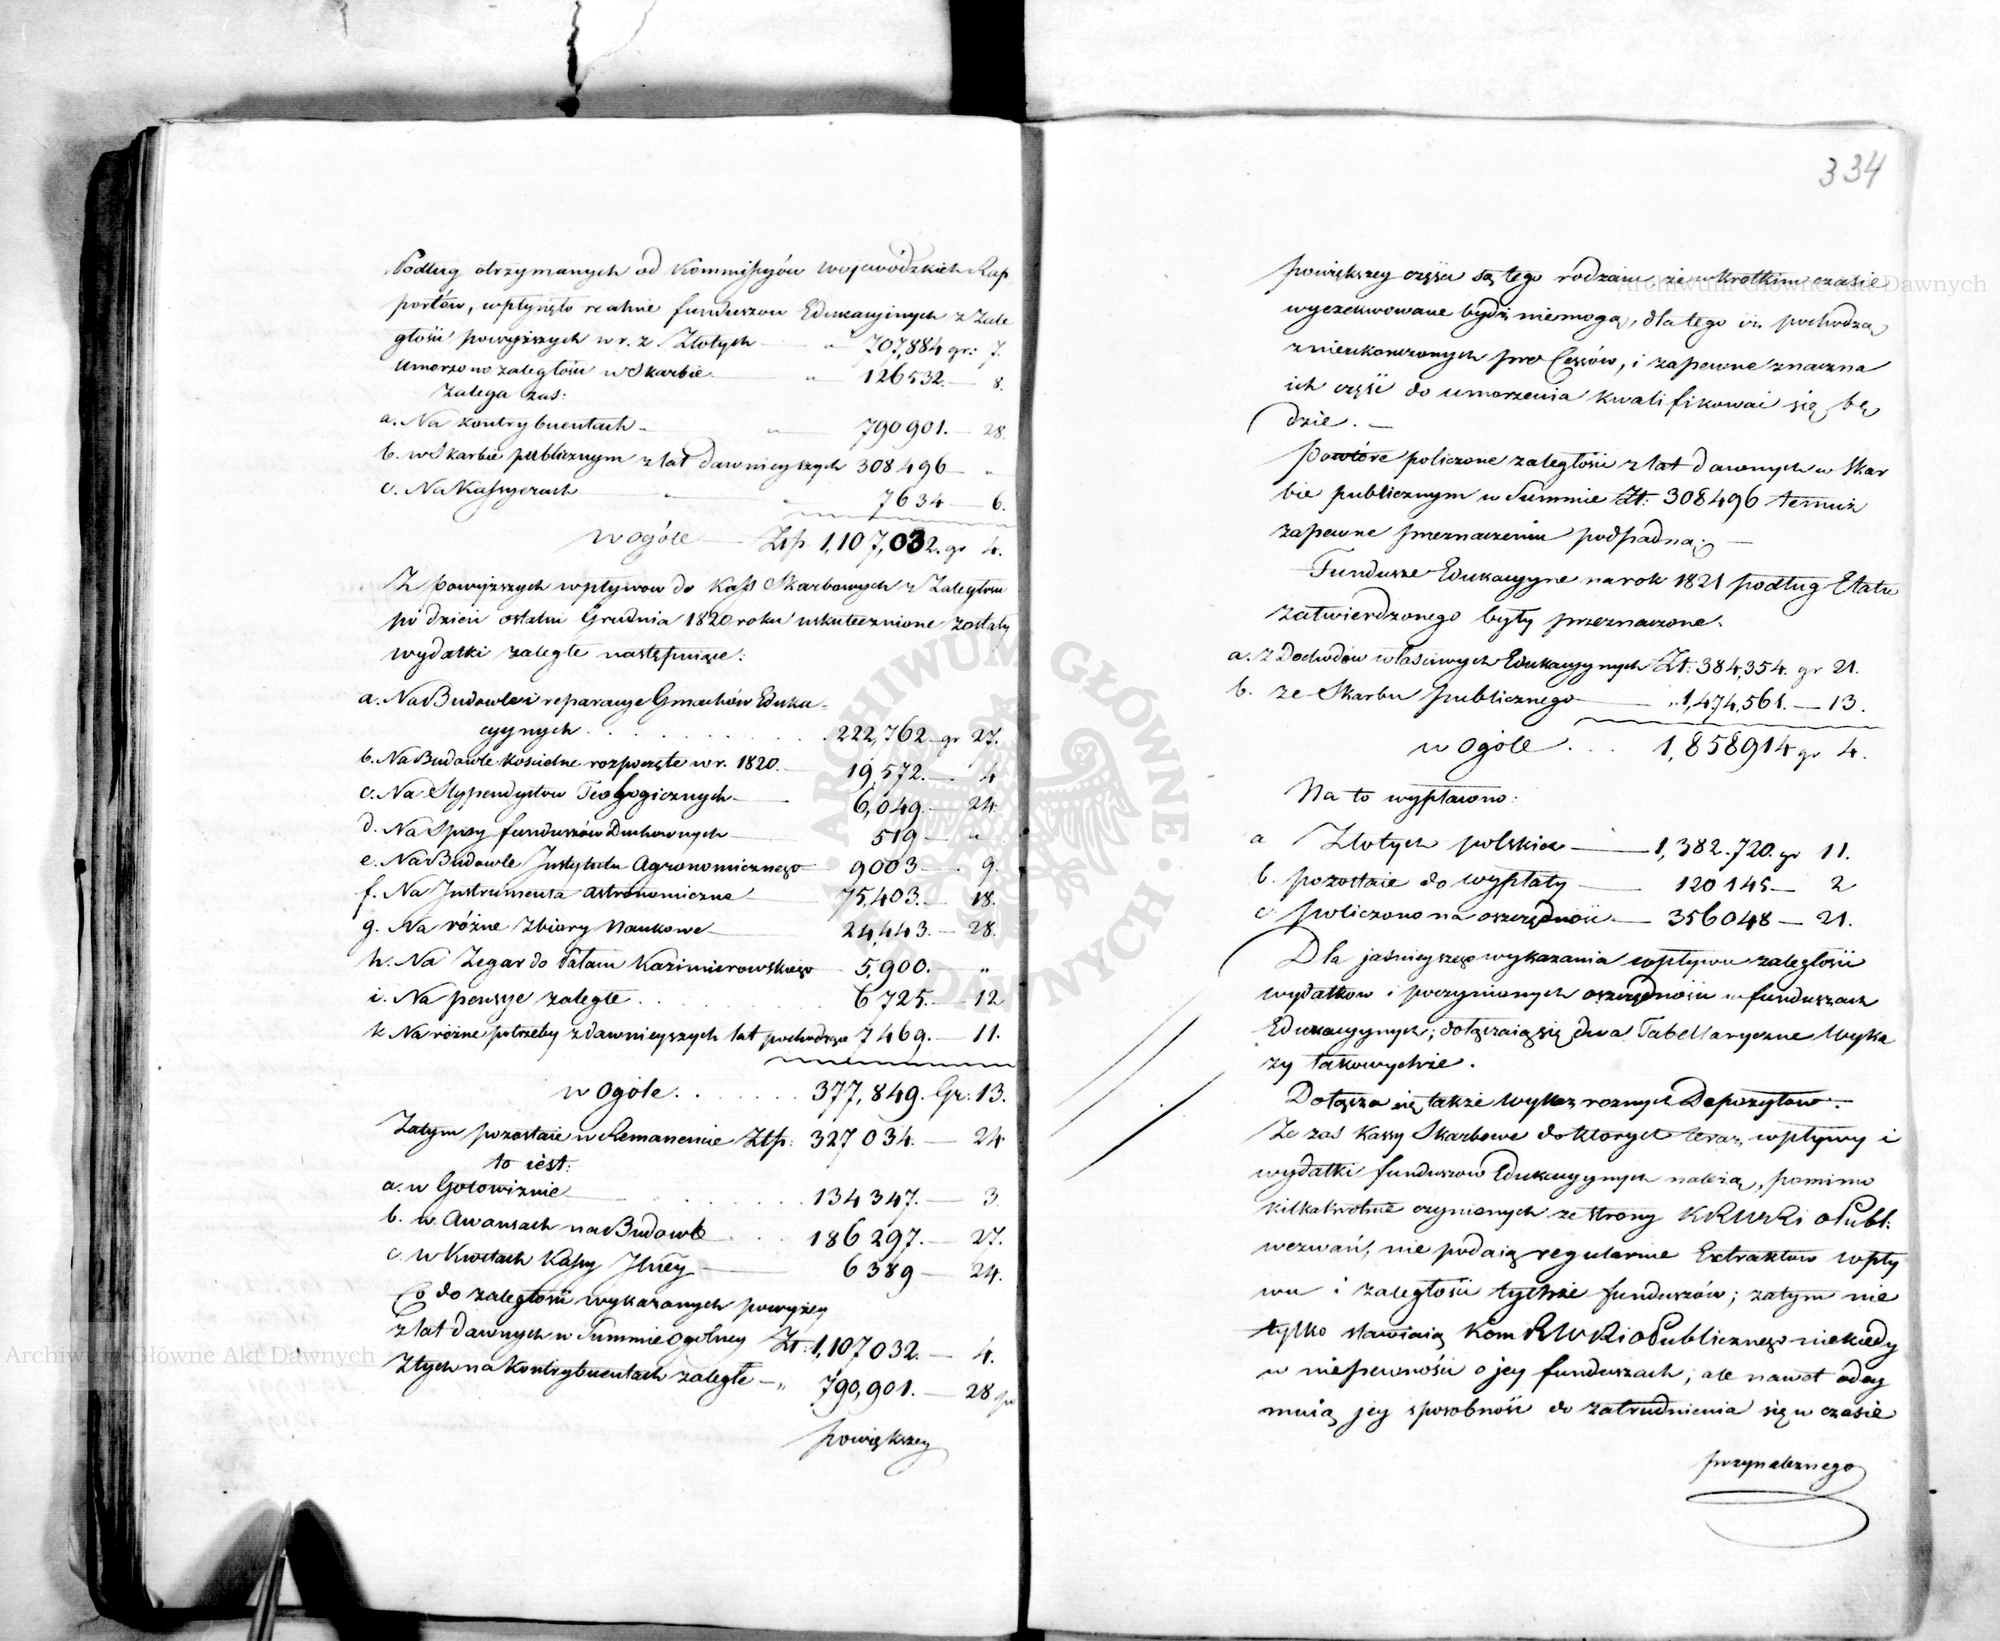 Podług otrzymanych od Kommissyów Wojewódzkich Rap
portów, wpłynęło realnie funduszow Edukacyinych z Zale
głości powyższych w r. z. Złotych — „ 707,884 gr: 7.
Umorzono zaległości w Skarbie — „ 126532. — 8.
Zalega zaś:
a. Na kontrybuentach — „ — 790901. — 28.
b. w Skarbie publicznym z lat dawnieyszych 308496 — „
c. Na Kassyerach „ „ 7634 — 6.
w ogóle — Złp. 1,107,032. gr 4.
Z powyższych wpływow do Kass Skarbowych z Zaległości
po dzień ostatni Grudnia 1820 roku uskutecznione zostały
wydatki zaległe następuiące:
a. Na Budowle i reparacye Gmachów Eduka-
cyynych . . . . . . 222,762. gr 27.
b. Na Budowle kościelne rozpoczęte w r. 1820. — 19,572. — 4
c. Na Stypendystów Teologicznych — 6,049. — 24.
d. Na Spisy funduszów Duchownych — 519 — „
e. Na Budowle Instytutu Agronomicznego — 9003 — 9.
f. Na Instrumenta astronomiczne — 75,403. — 18.
g. Na różne Zbiory Naukowe — 24,443. — 28.
h. Na Zegar do Pałacu Kazimierowskiego — 5,900. „
i. Na pensye zaległe . . . . . 6725. — 12
k Na różne potrzeby z dawnieyszych lat pochodzące 7469. — 11.
w ogóle . . . . . 377,849. Gr: 13.
Zatym pozostaie w Remanencie Złp: 327034. — 24
to iest:
a. w Gotowiznie . . . . 134347. — 3.
b. w Awansach na Budowle . . 186297. — 27.
c. w Kwotach Kassy — 6389 — 24.
Co do zaległości wykazanych powyżey
z lat dawnych w Summie ogolney Zł: 1,107032. — 4.
z tych na Kontrybuentach zaległe — „ 790,901. — 28 po
powiększey
334
powiększey części są tego rodzaiu, że w krotkim czasie
wyexekwowane bydź niemogą, dla tego iż pochodzą
z nieukończonych proCessów, i zapewne znaczna
ich część do umorzenia kwalifikować się bę
dzie. —
Powtóre policzone zaległości z lat dawnych w Skar
bie publicznym w Summie Zł: 308496 temuż
zapewne przeznaczeniu podpadną. —
Fundusze Edukacyyne na rok 1821 podług Etatu
zatwierdzonego były przeznaczone.
a. z Dochodów właściwych Edukacyynych Zł: 384,354. gr 21.
b. ze Skarbu publicznego — „ 1,474,561. — 13.
w ogóle . . . 1,858914 gr 4.
Na to wypłacono:
a Złotych polskich — 1,382.720. gr 11.
b. pozostaie do wypłaty — 120145 — 2
c policzono na oszczędności — 356048 — 21.
Dla jaśnieyszego wykazania wpływu zaległości
wydatkow i poczynionych oszczędności w funduszach
Edukacyynych; dołączaią się dwa Tabellaryczne Wyka
zy takowychże.
Dołącza się także Wykaz roznych Depozytow. —
Ze zaś Kassy Skarbowe do ktorych teraz wpływy i
wydatki funduszow Edukacyynych należą, pomimo
kilkakrotnie czynionych ze strony KRWRi OPubl:
wezwań, nie podaią regularnie Extraktow wpły
wu i zaległości tychże funduszów; zatym nie
tylko stawiaią Kom RWRi OPublicznego niekiedy
w niepewności o jey funduszach; ale nawet odey
muią jey sposobność do zatrudnienia się w czasie
przynależnego
Archiwum Główne Akt Dawnych
Archiwum Główne Akt Dawnych
ARCHIWUM GŁÓWNE AKT DAWNYCH